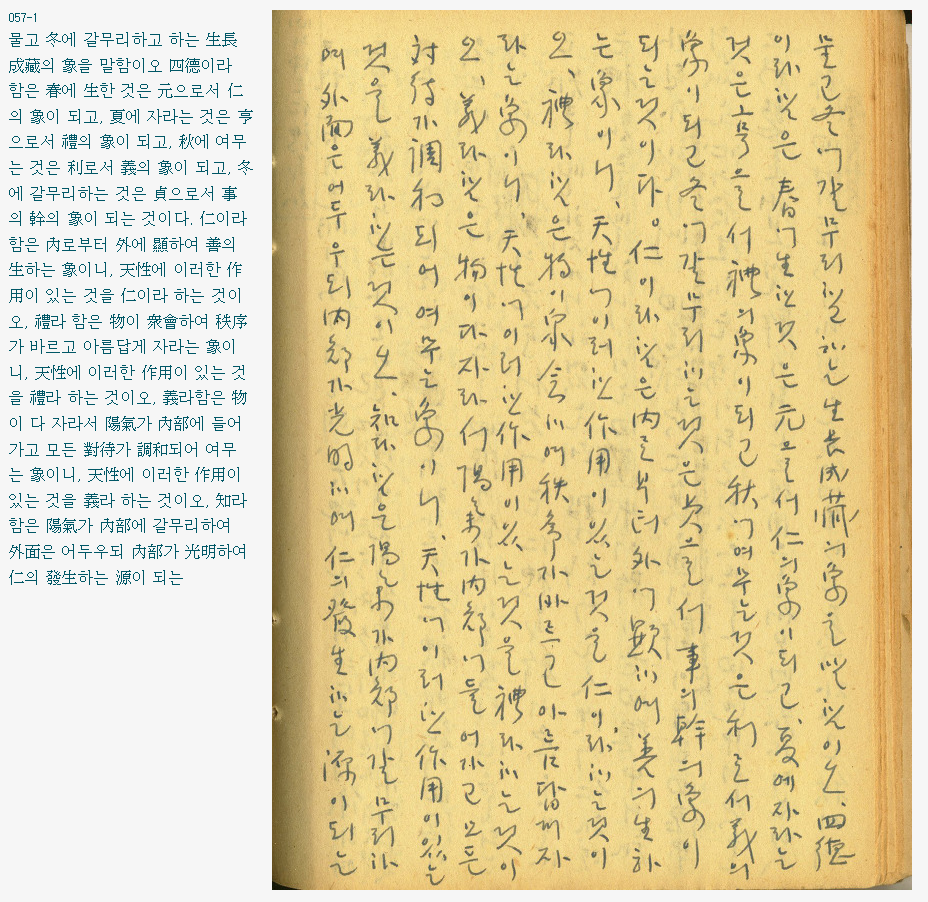 057-1
물고 冬에 갈무리하고 하는 生長
成藏의 象을 말함이오 四德이라
함은 春에 生한 것은 元으로서 仁
의 象이 되고, 夏에 자라는 것은 亨
으로서 禮의 象이 되고, 秋에 여무
는 것은 利로서 義의 象이 되고, 冬
에 갈무리하는 것은 貞으로서 事
의 幹의 象이 되는 것이다. 仁이라
함은 內로부터 外에 顯하여 善의
生하는 象이니, 天性에 이러한 作
用이 있는 것을 仁이라 하는 것이
오, 禮라 함은 物이 衆會하여 秩序
가 바르고 아름답게 자라는 象이
니, 天性에 이러한 作用이 있는 것
을 禮라 하는 것이오, 義라함은 物
이 다 자라서 陽氣가 內部에 들어
가고 모든 對待가 調和되어 여무
는 象이니, 天性에 이러한 作用이
있는 것을 義라 하는 것이오, 知라
함은 陽氣가 內部에 갈무리하여
外面은 어두우되 內部가 光明하여
仁의 發生하는 源이 되는
물고 冬에 갈무리하고 하는 生長成藏의 象을 말함이오、四德
이라함은 春에 生한 것은 元으로서 仁의 象이 되고、夏에 자라는
것은 亨으로서 禮의 象이 되고 秋에 여무는 것은 利로서 義의
象이 되고 冬에 갈무리하는 것은 貞으로서 事의 幹의 象이
되는 것이다。仁이라 함은 內로부터 外에 顯하여 善의 生하
는 象이니、天性에 이러한 作用이 있는 것을 仁이라 하는 것이
오、禮라 함은 物이 衆會하여 秩序가 바르고 아름답게 자
라는 象이니、天性에 이러한 作用이 있는 것을 禮라 하는 것이
오、義라 함은 物이 다 자라서 陽氣가 內部에 들어가고 모든
対待가 調和되어 여무는 象이니、天性에 이러한 作用이 있는
것을 義라 하는 것이오、知라 함은 陽氣가 內部에 갈무리하
여 外面은 어두우되 內部가 光明하여 仁의 發生하는 源이 되는